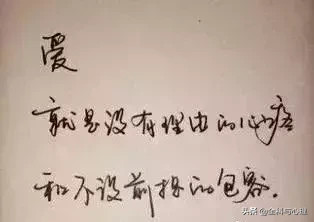 爱
就是没有理由的心疼
和不设前提的包容.
头条@金科与心理